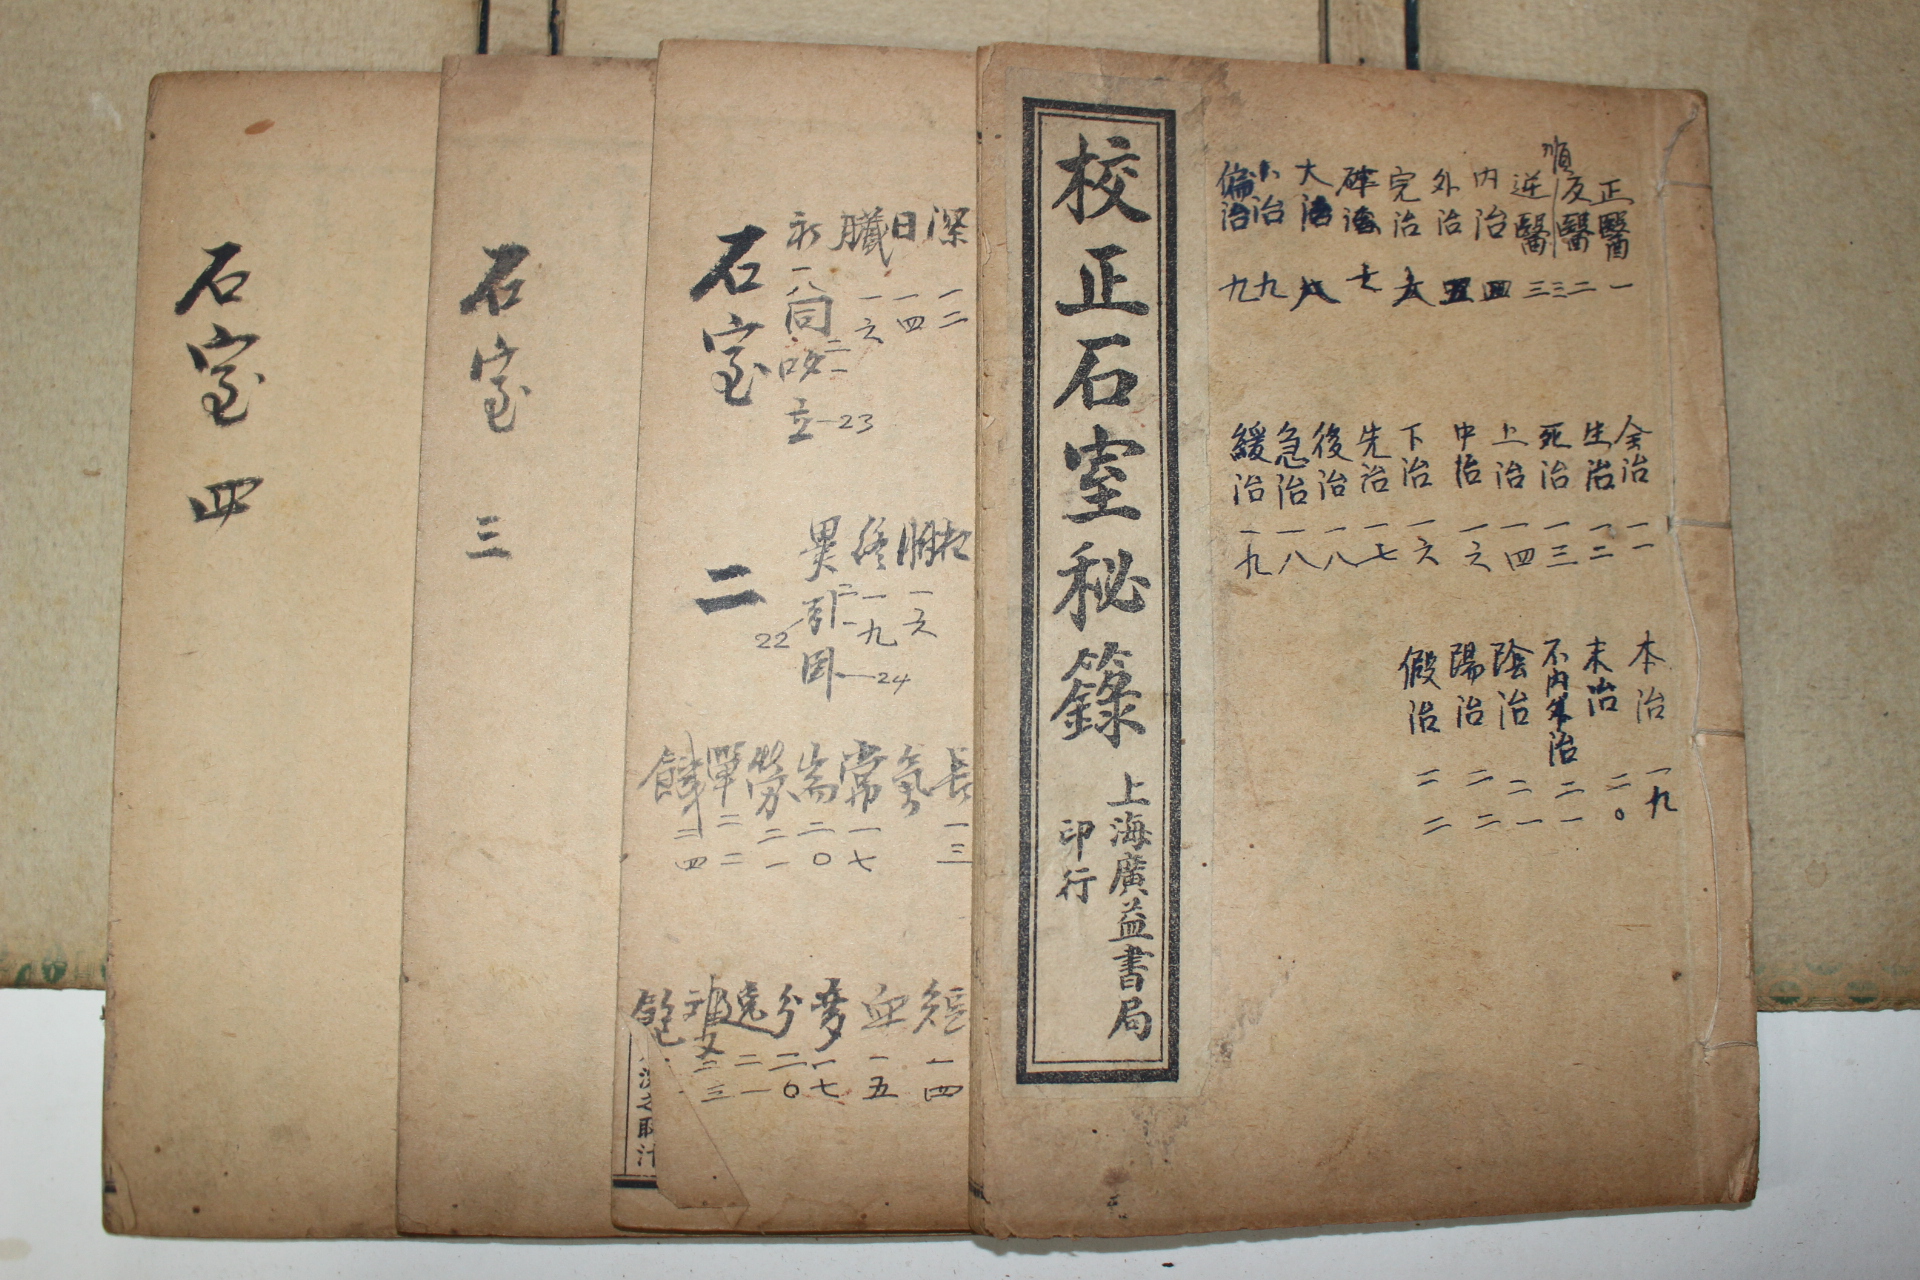 校正石室秘籙
上海廣益書局
印行
正醫 一
反醫 二
順 三
逆醫 三
内治 四
外治 五
完治 六
碎治 七
大治 八
小治 九
偏治 九
全治 一一
生治 一二
死治 一三
上治 一四
中治 一六
下治 一六
先治 一七
後治 一八
急治 一八
緩治 一九
本治 一九
末治 二〇
不内外治 二一
陰治 二一
陽治 二二
假治 二二
石室 二
深 一二
日 一四
臟 一六
初 一八
同 二一
立 23
腑 一六
終 一九
異
引 22
卧 24
長 一三
氣
常 一七
耑 二〇
勞 二一
單 二二
餓 二四
短 一四
血 一五
變 一七
分 二〇
逸 二一
雙 二三
飽
石室 三
石室 四